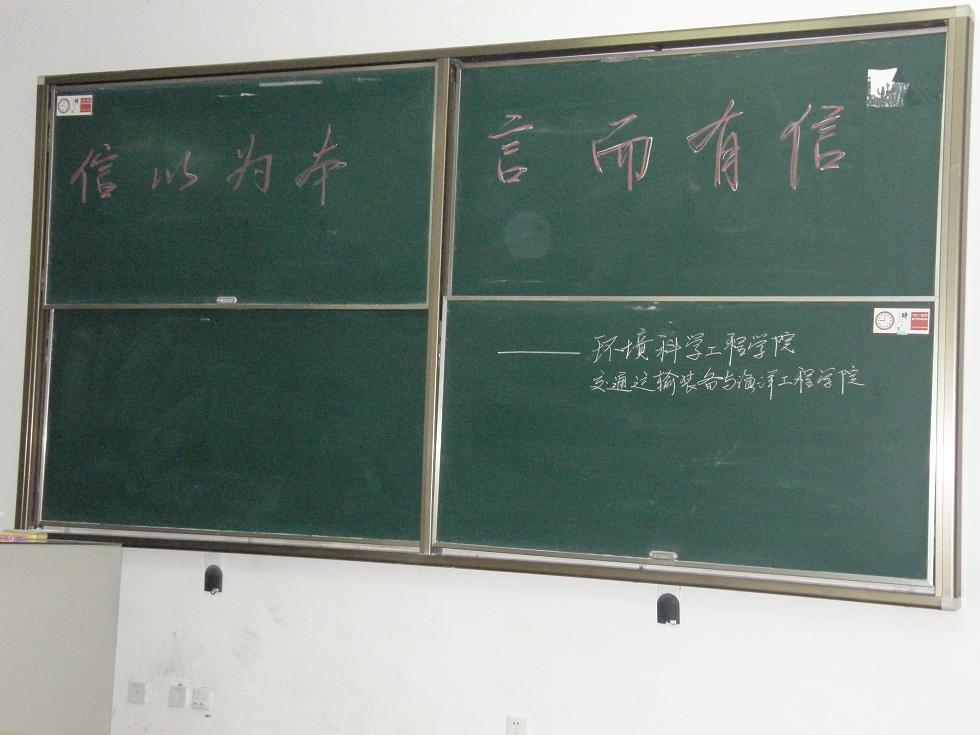 信以为本
言而有信
——环境科学工程学院
交通运输装备与海洋工程学院
时
时